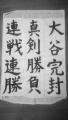 大谷完封
真剣勝負
連戦連勝